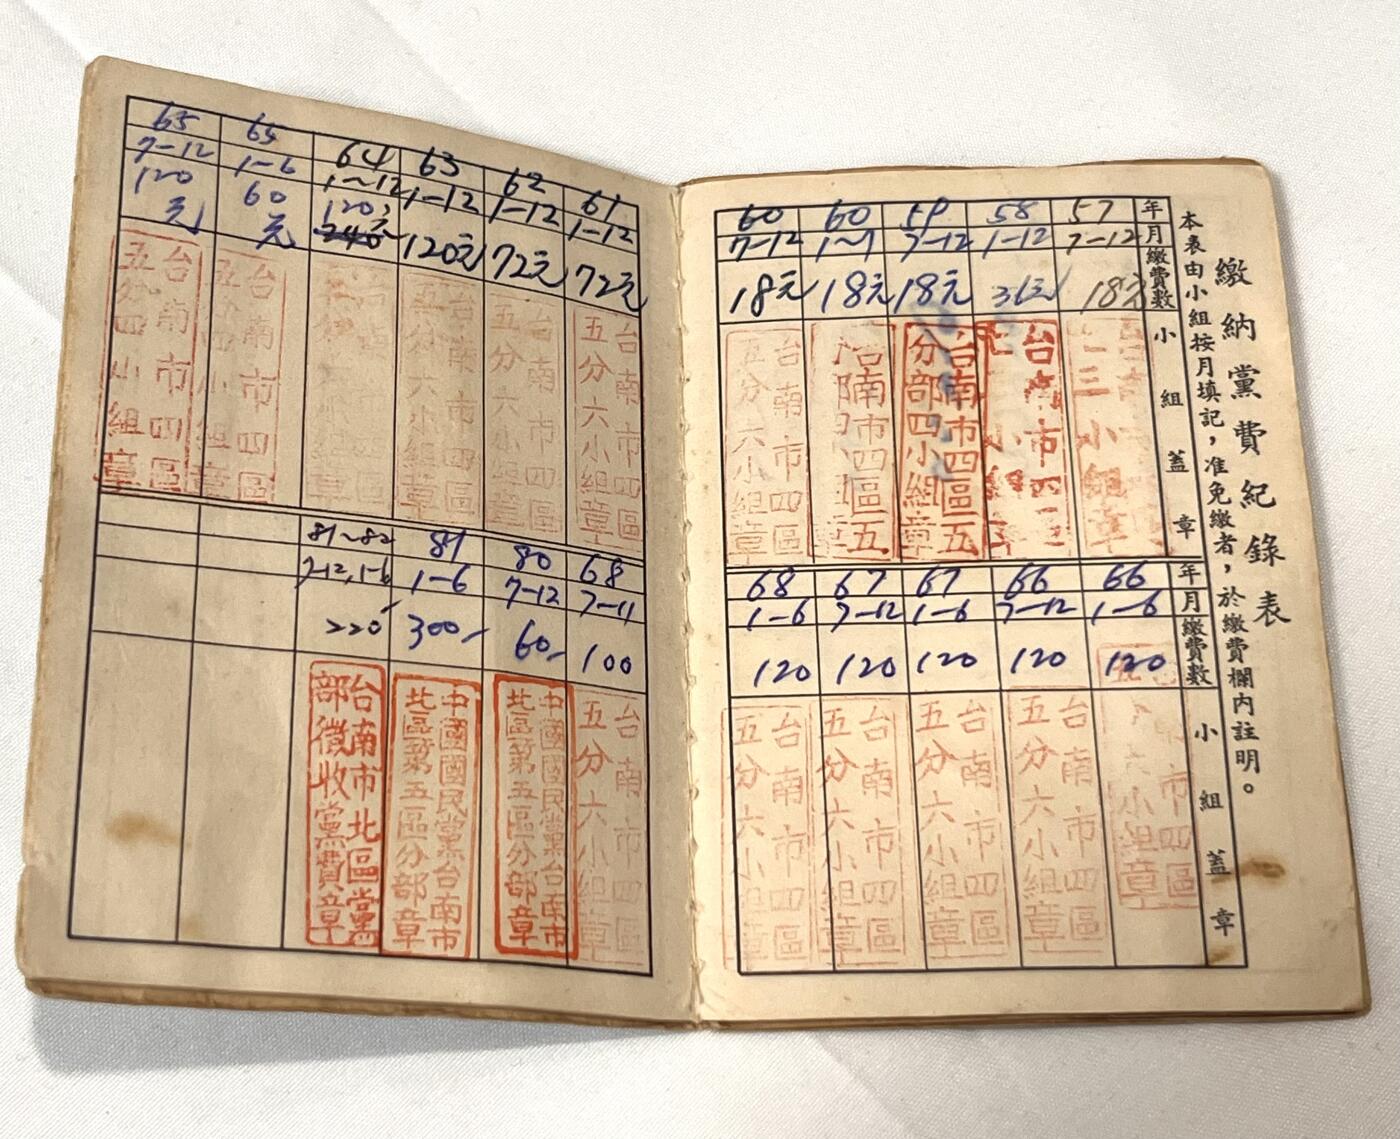 繳納黨費紀錄表
本表由小組按月填記，准免繳者，於繳費欄內註明。
年 57 58 59 60 60
月 7-12 1-12 7-12 1~7 7-12
繳費數 18元 36元 18元 18元 18元
小組蓋章
台南市四區五分部四小組章
台南市四區五分六小組章
年 66 66 67 67 68
月 1-6 7-12 1-6 7-12 1-6
繳費數 120 120 120 120 120
小組蓋章
台南市四區五分六小組章
台南市四區五分六小組章
台南市四區五分六小組章
台南市四區五分六小組章
61 62 63 64 65 65
1-12 1-12 1-12 1~12 1-6 7-12
72元 72元 120元 240 120元 60元 120元
台南市四區五分六小組章
台南市四區五分六小組章
台南市四區五分六小組章
台南市四區五分四小組章
台南市四區五分四小組章
68 80 81 81~82
7-11 7-12 1-6 7-12,1-6
100 60- 300- 220
台南市四區五分六小組章
中國國民黨台南市北區第五區分部章
中國國民黨台南市北區第五區分部章
台南市北區黨部徵收黨費章